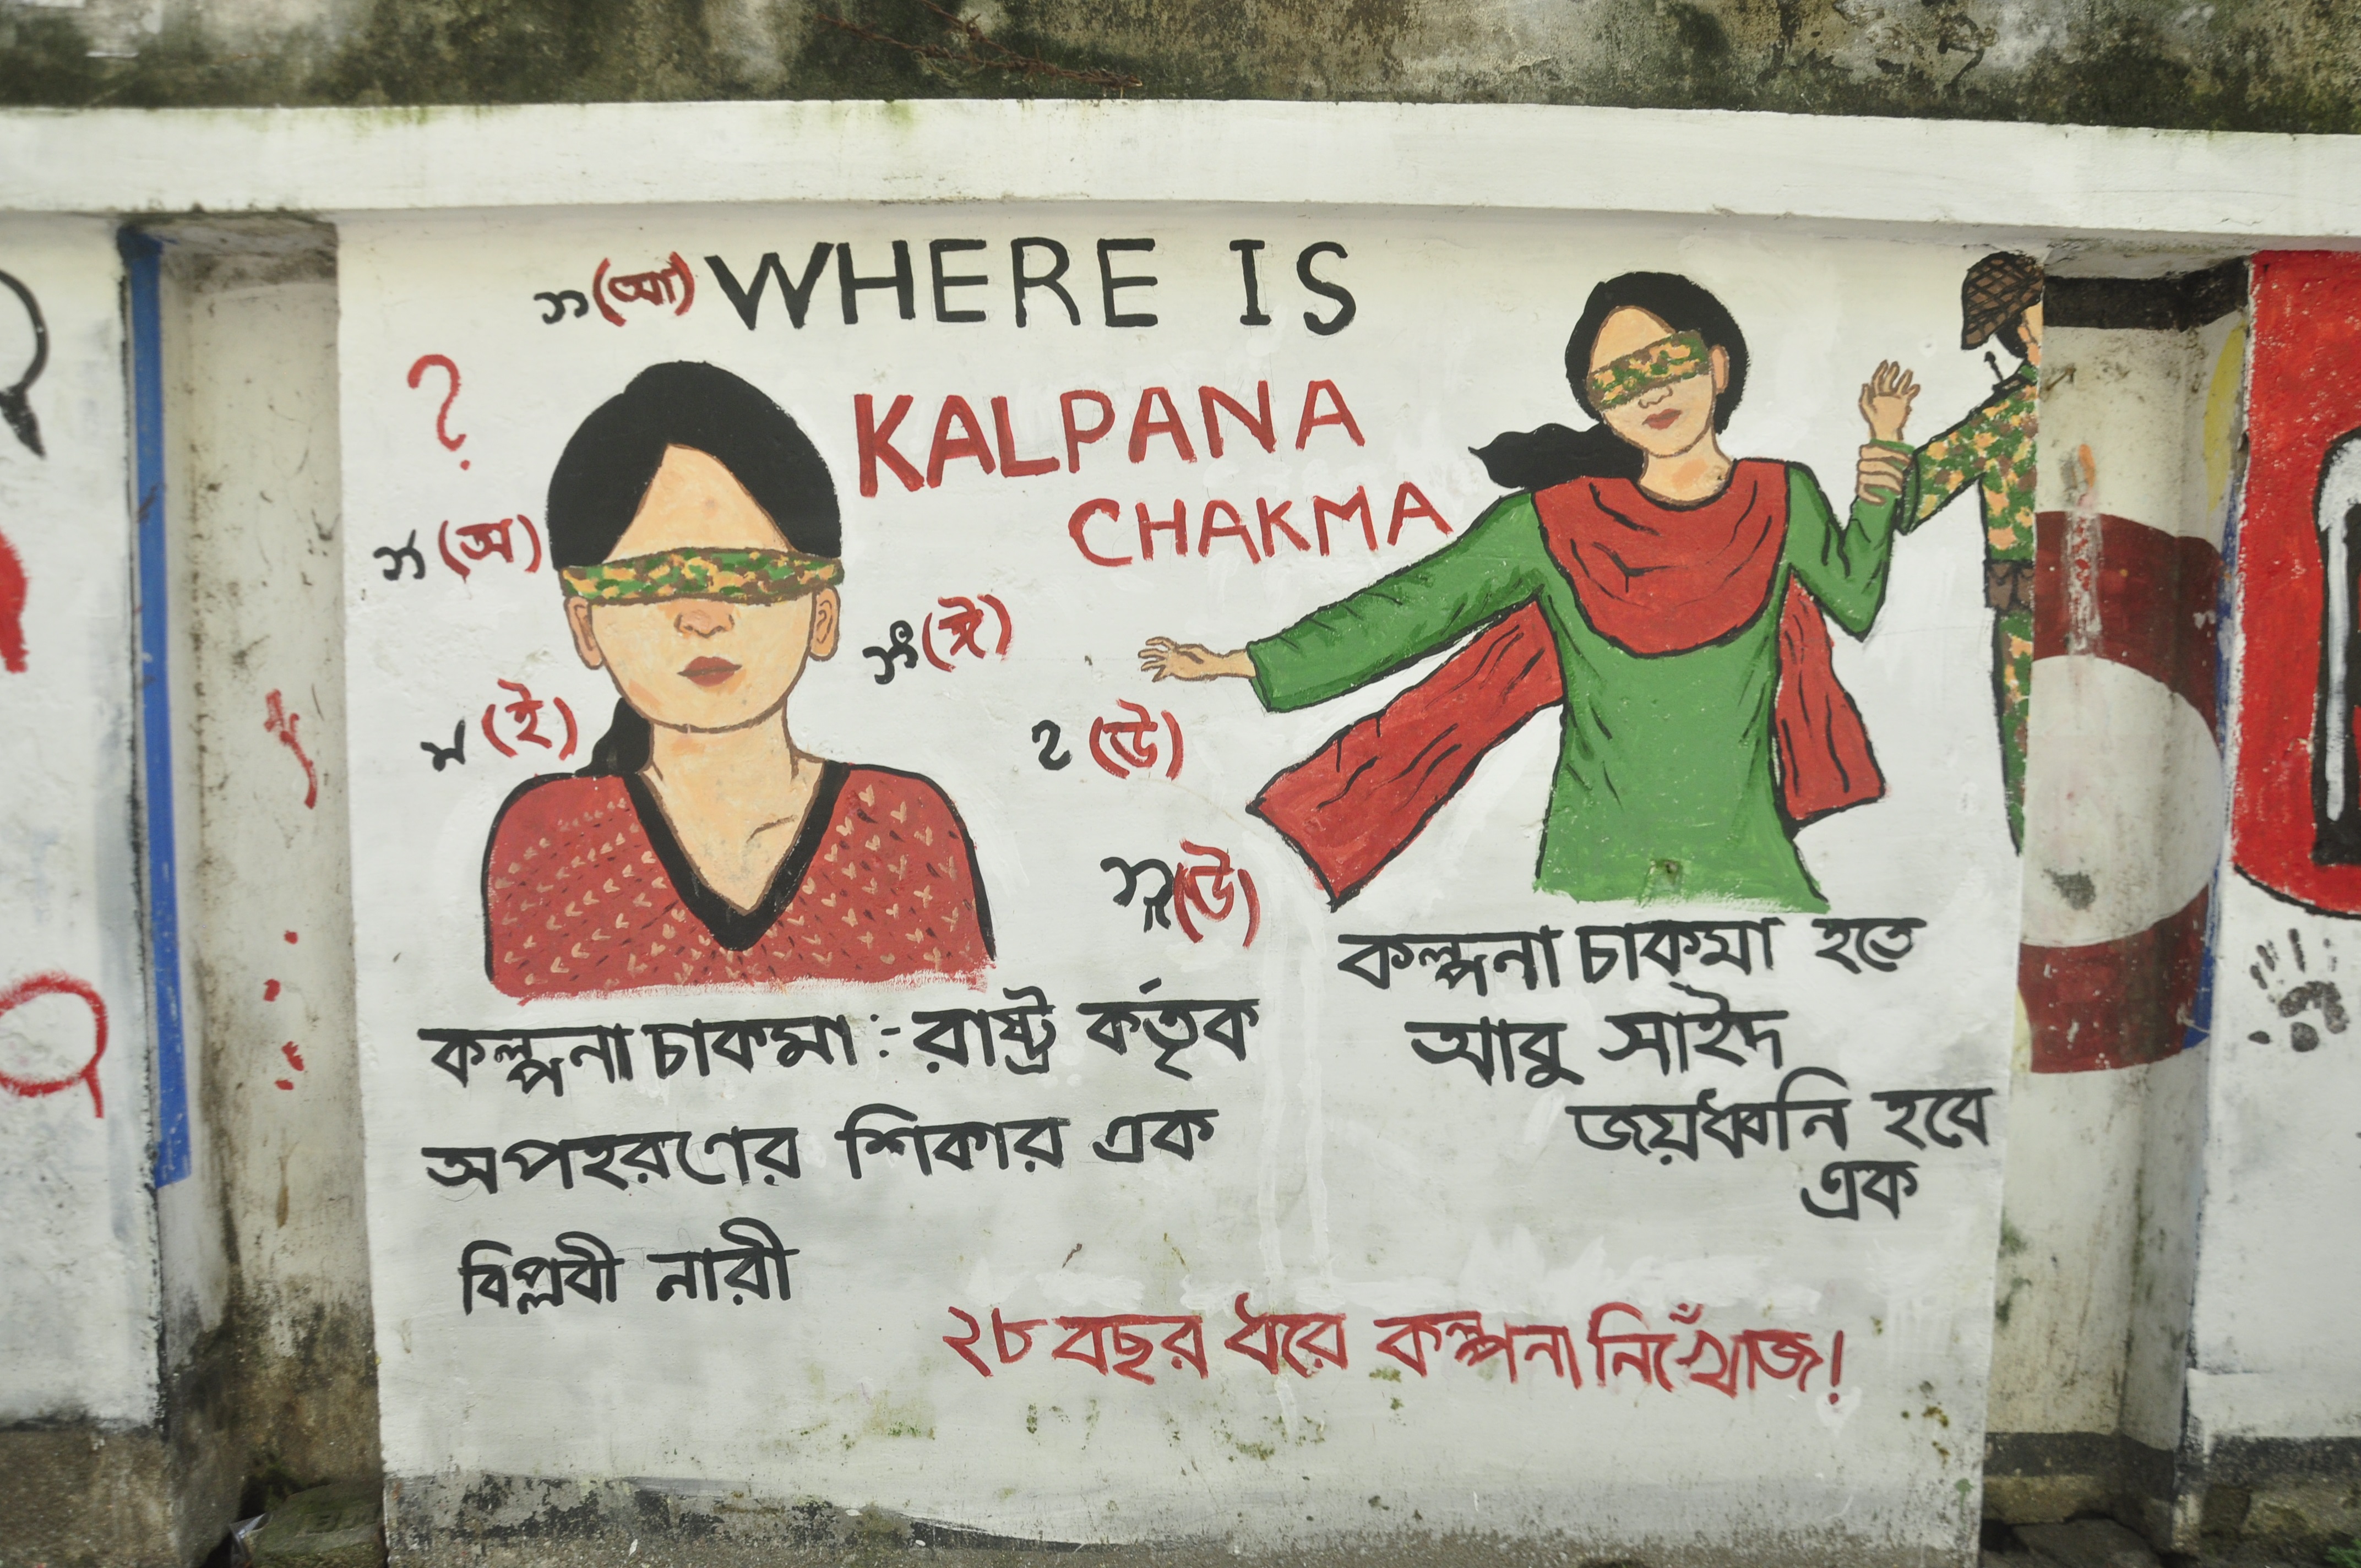 (আ) WHERE IS
?
KALPANA
CHAKMA
(অ)
(ঈ)
(ই)
(উ)
(ঊ)
কল্পনা চাকমা :- রাষ্ট্র কর্তৃক
অপহরণের শিকার এক
বিপ্লবী নারী
কল্পনা চাকমা হতে
আবু সাইদ
জয়ধ্বনি হবে
এক
২৮ বছর ধরে কল্পনা নিখোঁজ!